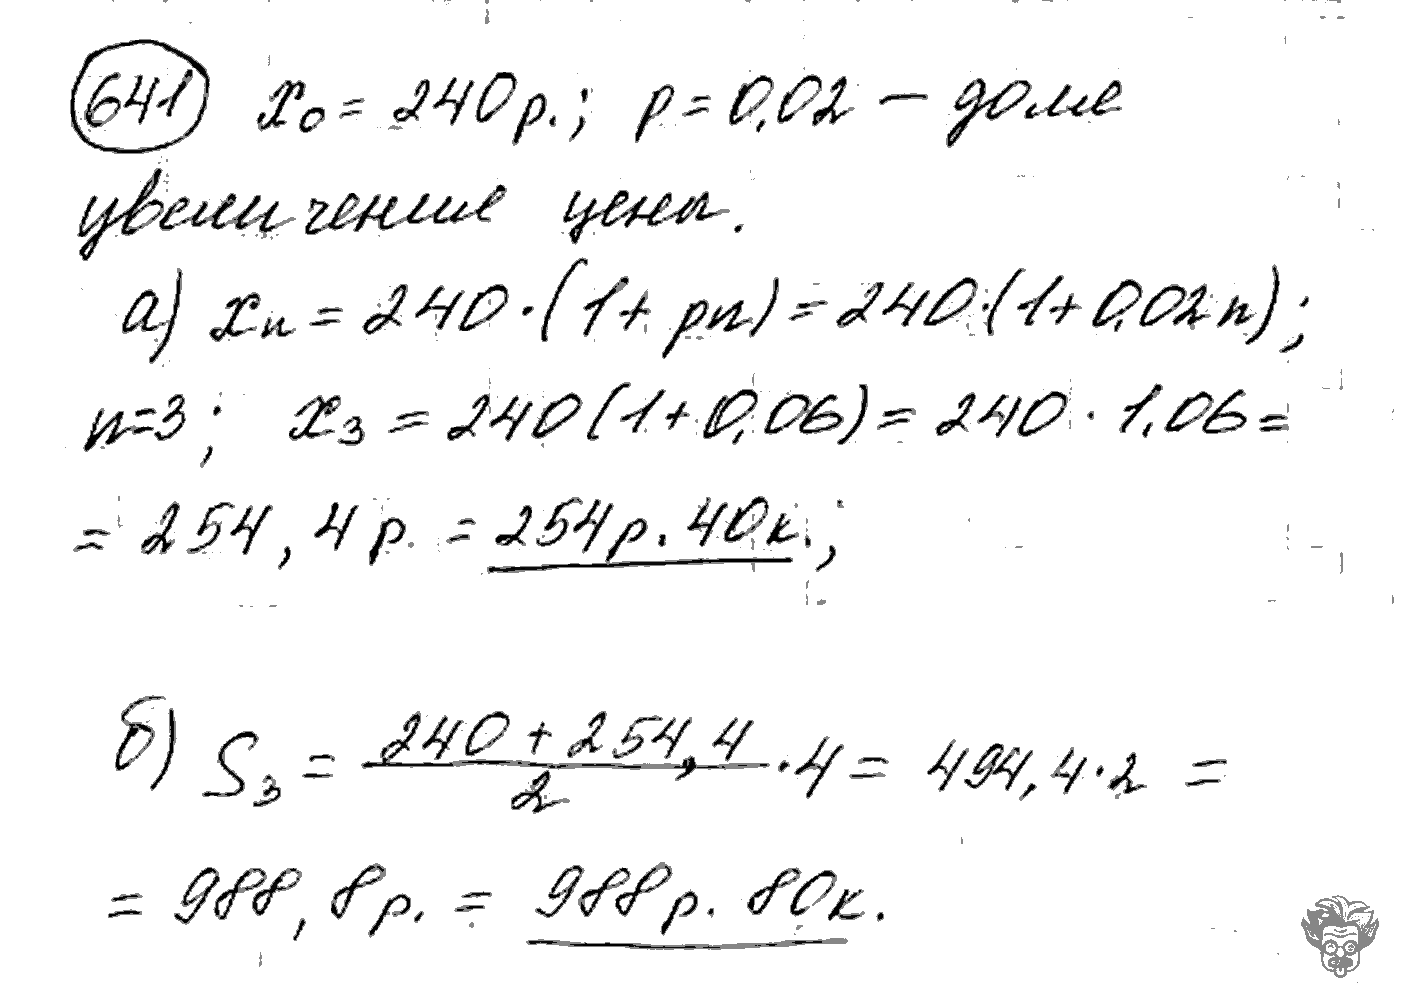 641 x₀ = 240 р.; p = 0,02 – доле
увеличение цены.
а) xₙ = 240 · (1 + pn) = 240 · (1 + 0,02n);
n=3; x₃ = 240 (1 + 0,06) = 240 · 1,06 =
= 254,4 р. = 254 р. 40 к.;
б) S₃ = (240 + 254,4)/2 · 4 = 494,4 · 2 =
= 988,8 р. = 988 р. 80 к.